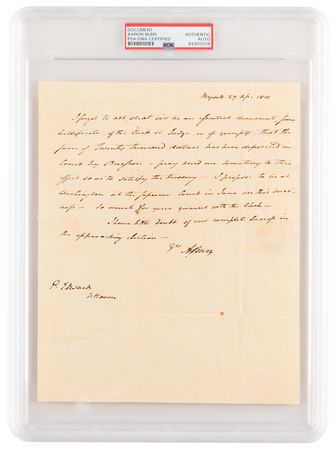 DOCUMENT
AARON BURR
PSA/DNA CERTIFIED
AUTHENTIC
AUTO
84465928
NYork 27 Ap. 1801
I forgot to ask that
be an official document, from
Certificate of the Clerk or Judge or of yourself, that the
sum of Twenty thousand dollars has been deposited in
Court by — pray send me something to this
effect so as to satisfy the treasury — I propose to be at
Washington at the Supreme Court in June on this
— So much for your quarrel with the
I have little doubt of our complete success in
the approaching election —
A Burr
P. Edwards
NHaven